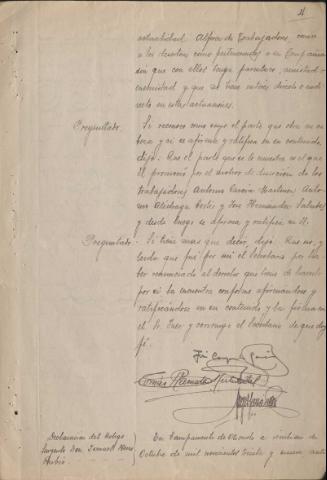 4
actualidad Alférez de Trabajadores, conoce
a los desertores como pertenecientes a su Compañía
sin que con ellos tenga parentesco, amistad o
enemistad y que no tiene interés directo e indi-
recto en estas actuaciones.
Preguntado. Si reconoce como suyo el parte que obra en ca-
beza y si se afirma y ratifica en su contenido,
dijo: Que el parte que se le muestra es el que
él promovió por el motivo de deserción de los
trabajadores Antonio García Martínez Anto-
nio y José Hernández
y desde luego se afirma y ratifica en él.
Preguntado. Si tiene más que decir, dijo: Que no, y
leida que fué por mi el Secretario por ha-
ber renunciado al derecho que tiene de hacerlo
por si la encuentra conforme afirmándose y
ratificándose en su contenido y la firma con
el Sr. Juez y conmigo el Secretario de que doy
fé.
Declaración del testigo
Sargento Don
En Campamento de a veintiuno de
Octubre de mil novecientos treinta y nueve